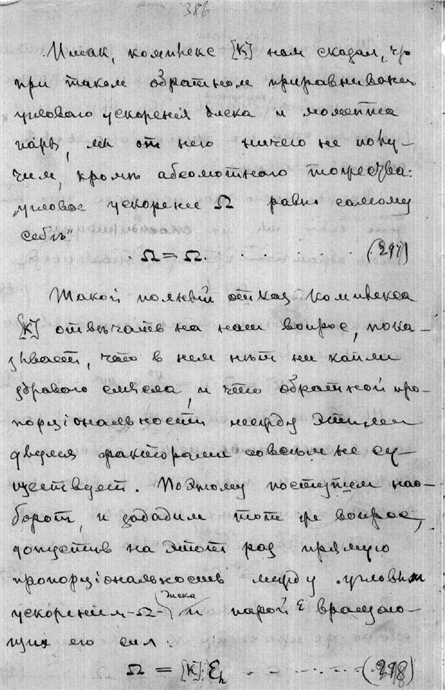 386
Итак, комплекс [K] нам сказал, что
при таком обратном приравнивании
углового ускоренія диска и момента
пары, мы от него ничего не полу-
чим, кромѣ абсолютного тожества:
„угловое ускореніе Ω равно самому
себѣ"
Ω = Ω. . . . . . . (297)
Такой полный отказ комплекса
[K] отвѣчать на наш вопрос, пока-
зывает, что в нем нѣт ни капли
здраваго смысла, и что обратной про-
порціональности между этими
двумя факторами совсѣм не су-
ществует. Поэтому поступим нао-
борот, и зададим тот же вопрос,
допустив на этот раз прямую
пропорціональность между угловым
ускореніем -Ω- диска и парой ℰ вращаю-
щих его сил:
Ω = [K] ℰh - - - - - - (298)